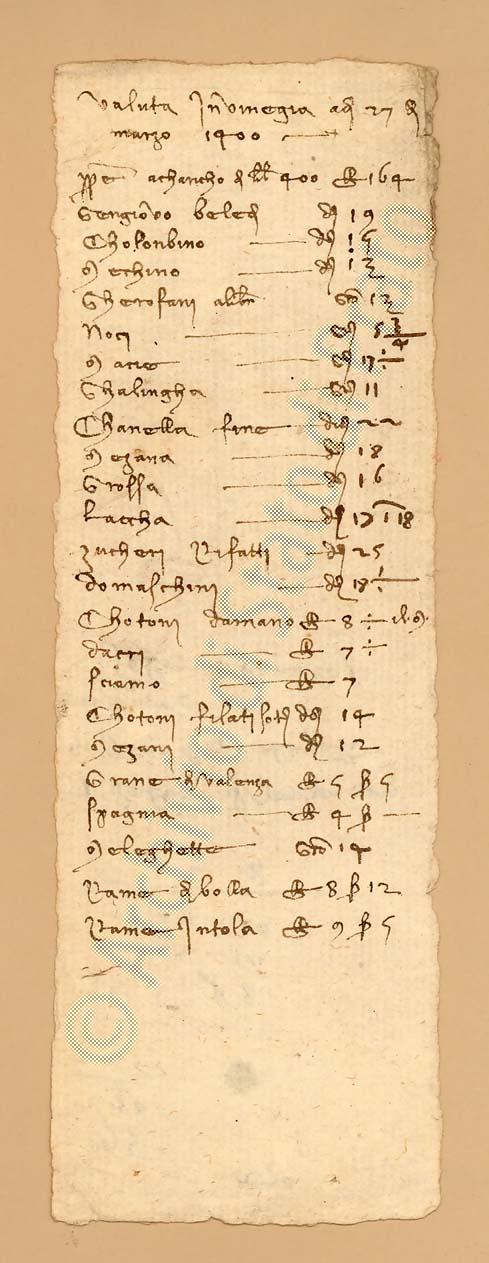 valuta Invinegia adi 27 di
marzo 1400
pepe achancho di lb 400 164
Gengiovo beledi d 19
Cholonbino d 15
Mechino d 12
Gherofani
Noci 5 3/4
Macie 17 ÷
Ghalingha 11
Chanella fine d 22
Mezana d 18
Grossa d 16
Laccha d 17 i 18
zucheri Rifatti d 25
domaschini d 18 ÷
Chotoni damano 8 ÷
dacri 7 ÷
sciamo 7
Chotoni filati sot d 14
Mezani d 12
Grane di valenza 5 5
spagnia 4
Meleghette 14
Rame di bolla 8 12
Rame Intola 9 5
© Archivio di Stato di Prato